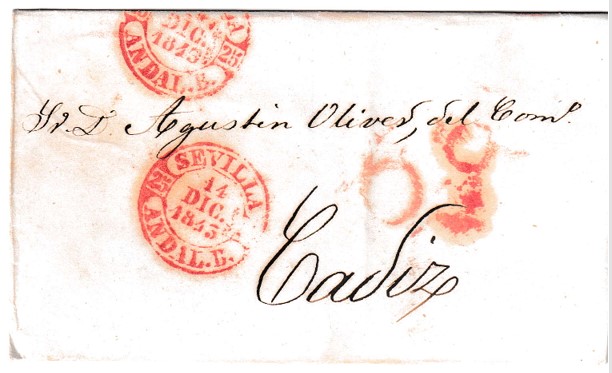 25 DIC. 1843 25
ANDAL.E.
Sr. D. Agustin Oliver, del Comº.
SEVILLA
14
25 DIC.
1843
ANDAL.E.
Cadiz